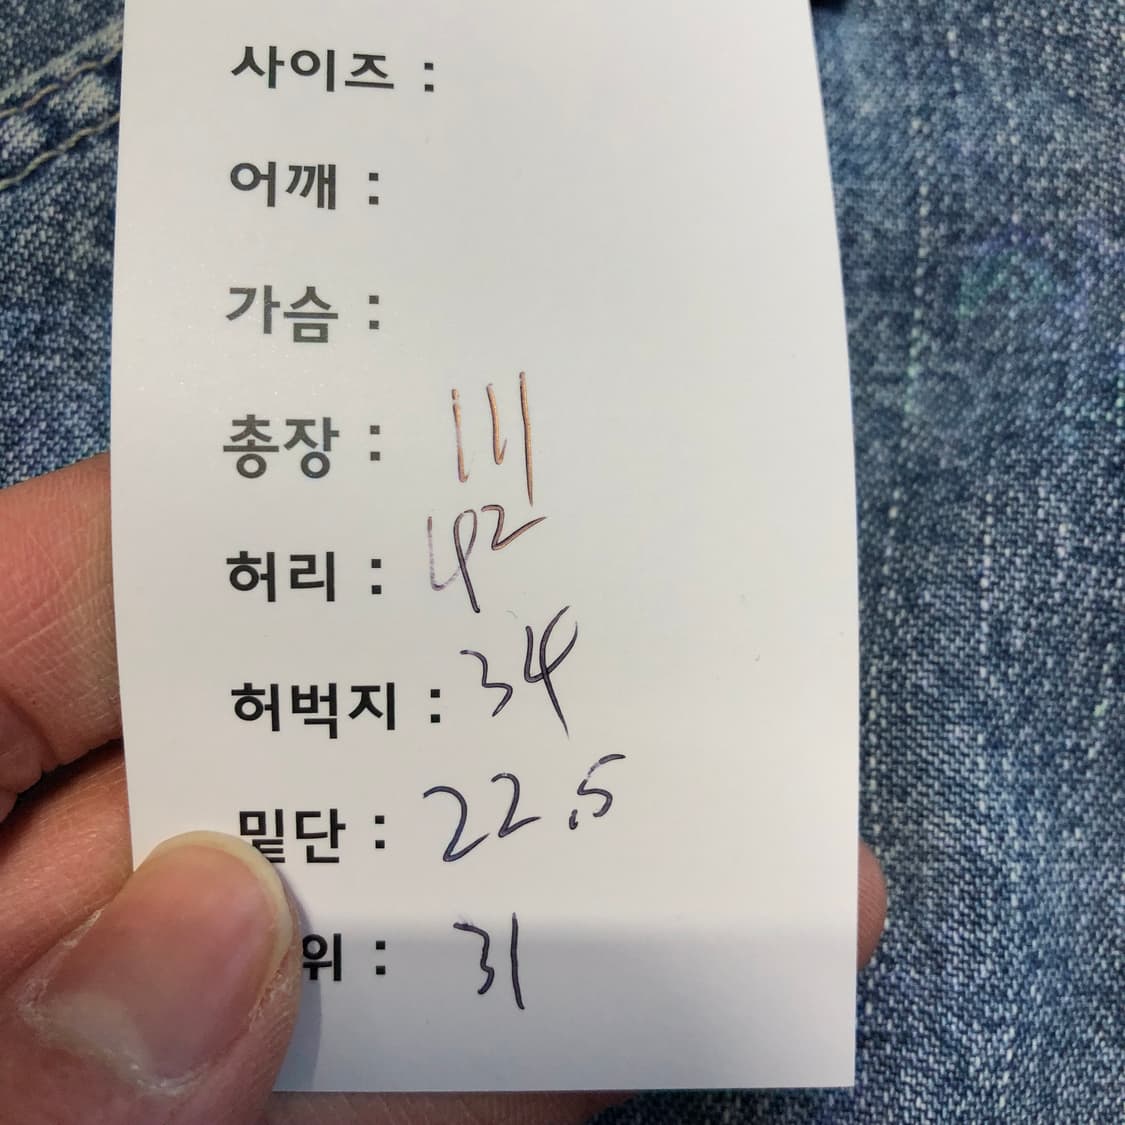 사이즈 :
어깨 :
가슴 :
총장 : 111
허리 : 42
허벅지 : 34
밑단 : 22.5
위 : 31